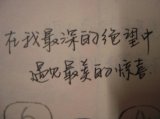 在我最深的绝望中
遇见最美的惊喜